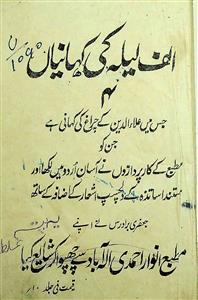 الف لیلہ کی کہانیاں
۴
جس میں علاء الدین کے چراغ کی کہانی ہے
جن کو
مطبع کے کارپردازوں نے آسان اردو میں لکھا اور
مستند اساتذہ کے دلچسپ اشعار کے اضافہ کے ساتھ
جعفری برادرس نے اپنے
مطبع انوار احمدی الہ آباد سے چھپوا کر شایع کیا
قیمت فی جلد ۱۰؍